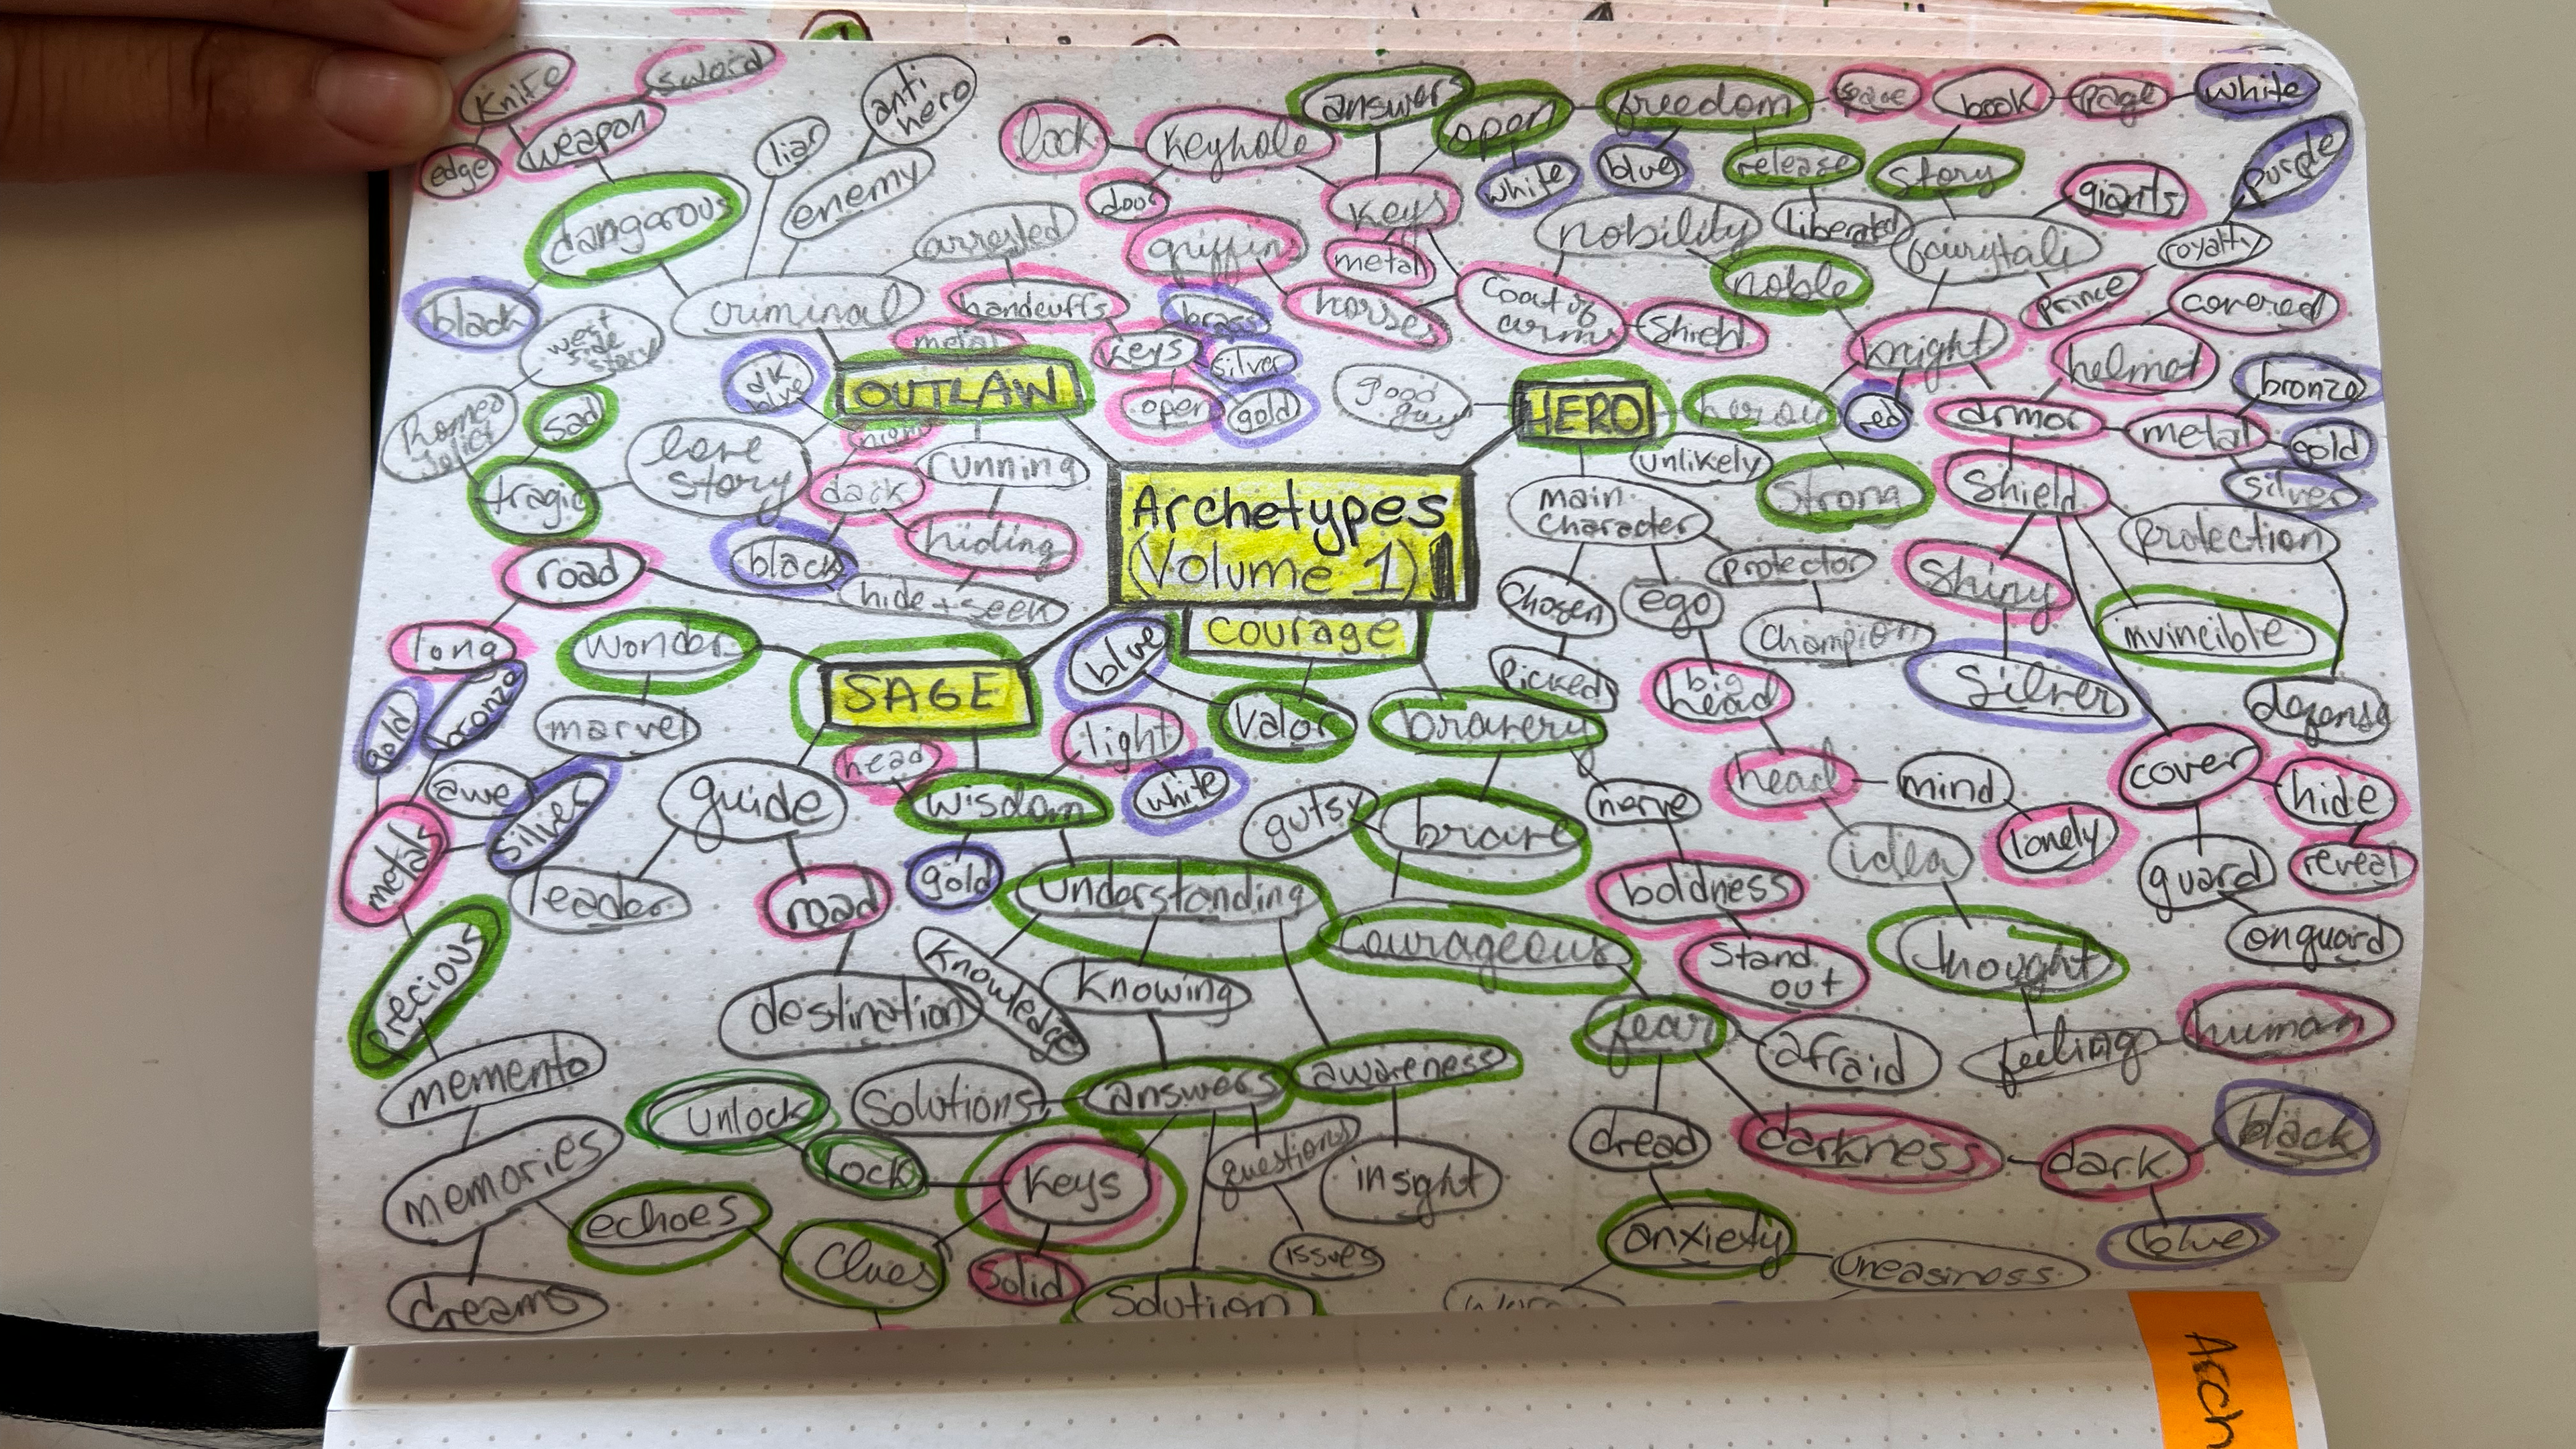 Knife
sword
edge
weapon
dangerous
black
liar
anti
hero
enemy
criminal
arrested
handcuffs
metal
keys
brass
silver
gold
open
west
side
story
Romeo
sad
tragic
love
story
dk
blue
OUTLAW
dark
black
running
hiding
hide + seek
road
long
gold
bronze
lock
keyhole
answers
open
door
keys
metal
griffins
horses
Coat of
arms
Shield
white
blue
freedom
space
book
page
white
release
Story
liberated
nobility
noble
fairytale
giants
purple
royalty
prince
covered
knight
helmet
red
armor
metal
bronze
gold
silver
good
guy
HERO
unlikely
Strong
main
character
Chosen
picked
ego
protector
champion
Shield
protection
Shiny
invincible
Silver
defense
big
head
head
mind
lonely
idea
thought
feeling
human
cover
hide
reveal
guard
onguard
Archetypes
(Volume 1)
courage
blue
Valor
bravery
gutsy
brave
nerve
boldness
Stand
out
Courageous
fear
afraid
dread
darkness
dark
black
blue
anxiety
uneasiness
SAGE
wonder
marvel
awe
silver
metals
precious
memento
memories
dreams
echoes
Clues
guide
leader
road
destination
head
wisdom
light
white
gold
understanding
Knowledge
Knowing
awareness
insight
answers
Solutions
unlock
lock
Keys
Solid
questions
issues
Solution
Arch